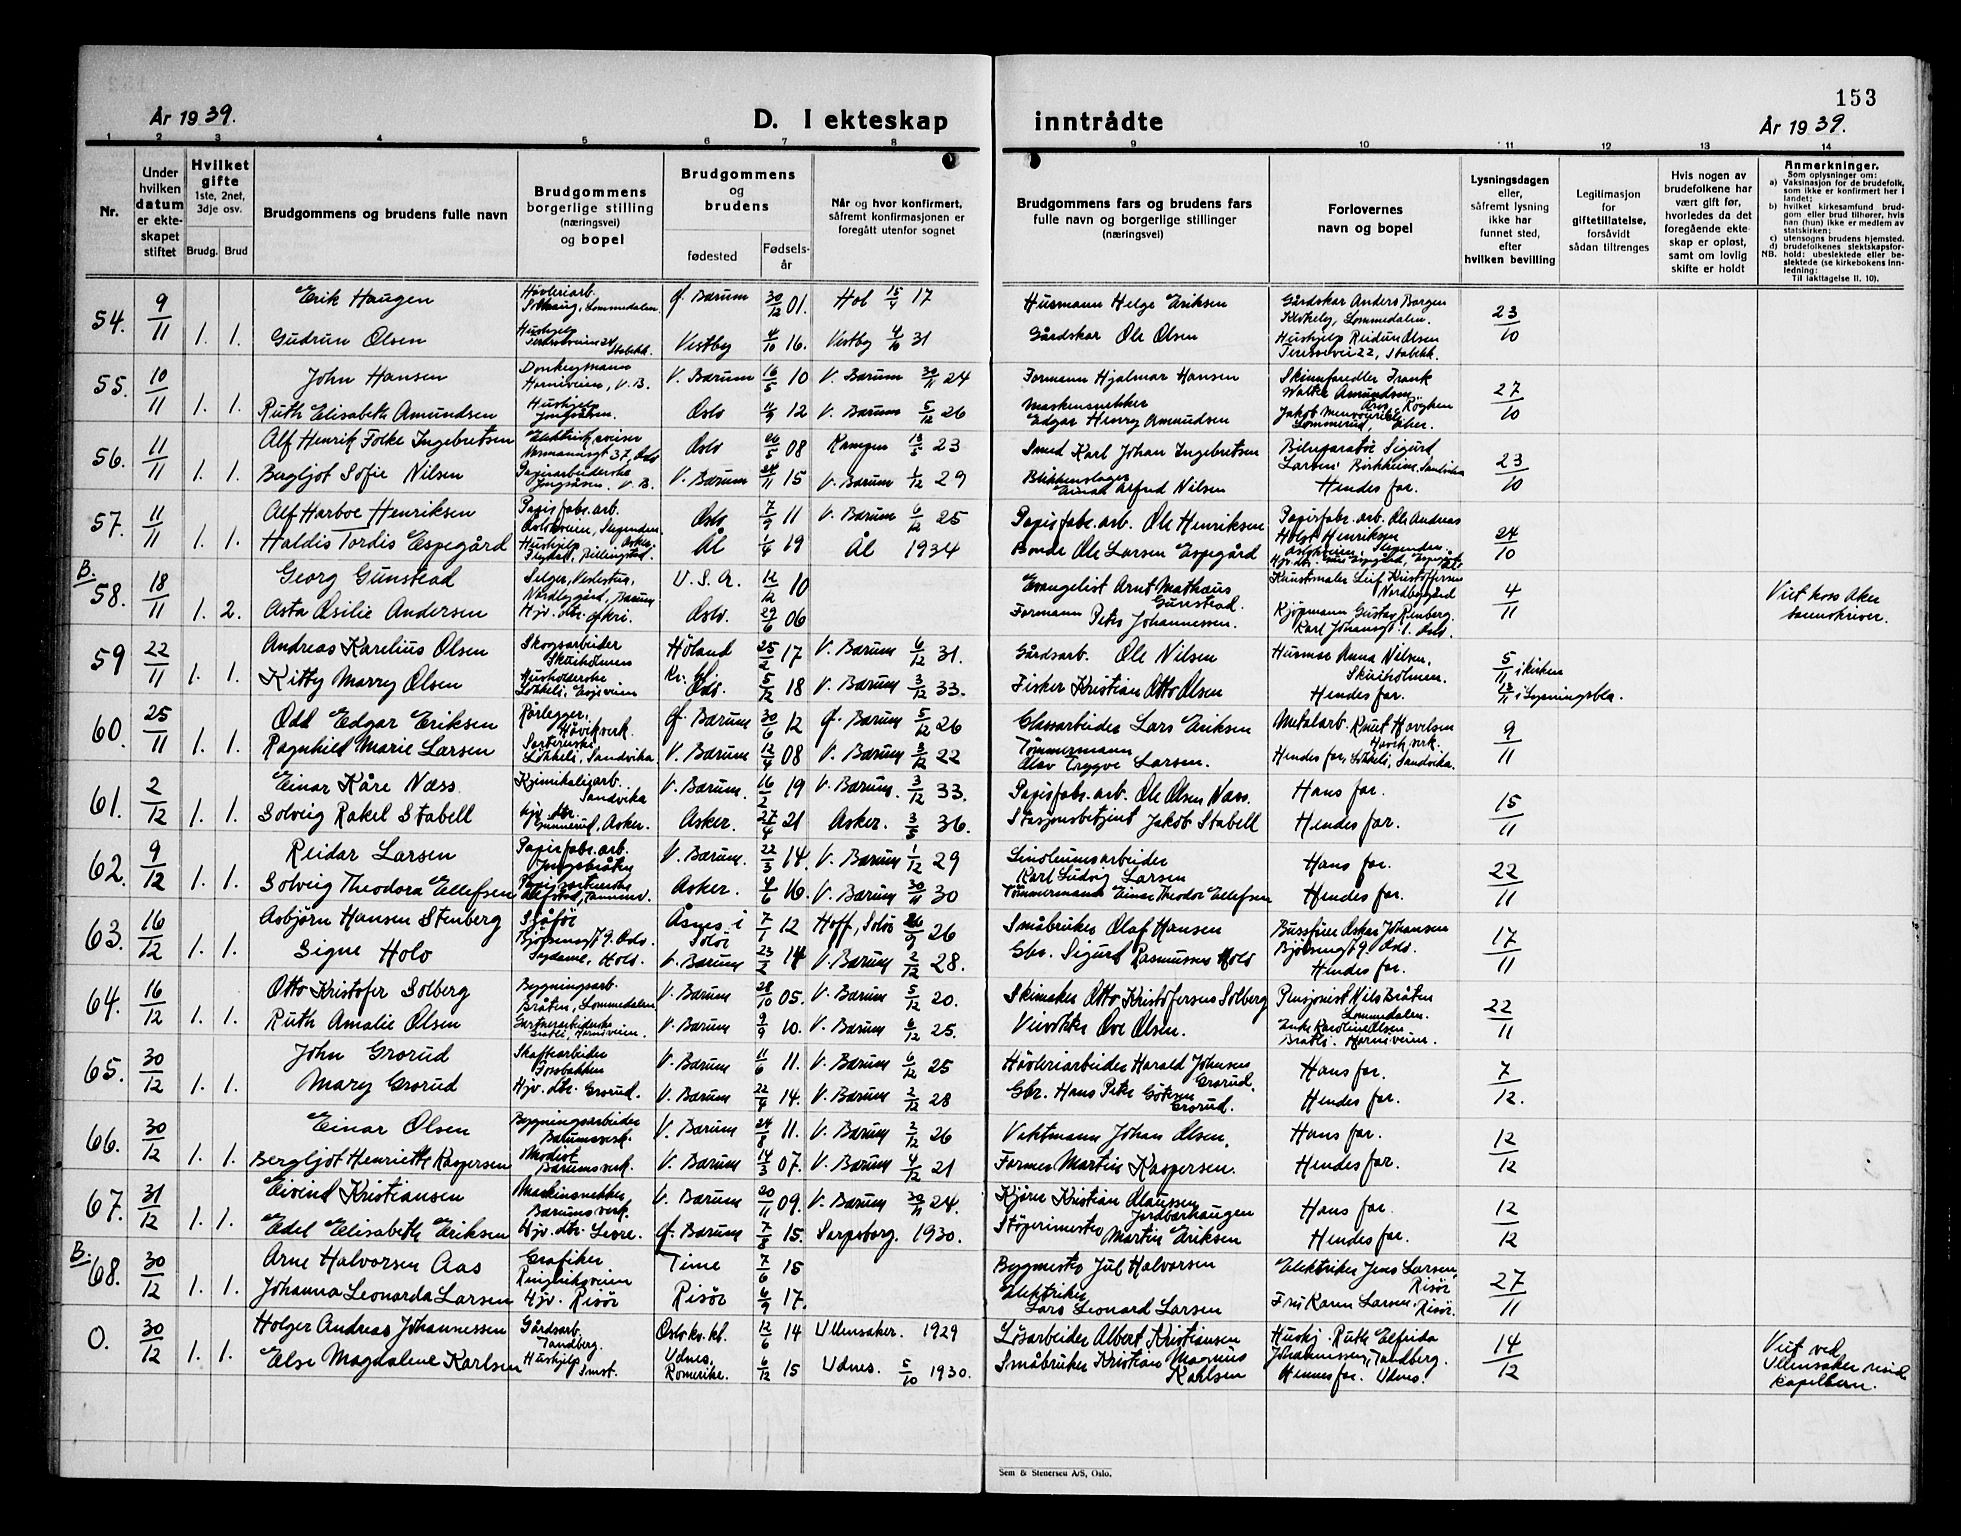 153
År 1939.
D. I ekteskap inntrådte
År 1939.
1 2 3 4 5 6 7 8 9 10 11 12 13 14
Nr.
Under hvilken datum er ekteskapet stiftet
Hvilket gifte 1ste, 2net, 3dje osv.
Brudg. Brud
Brudgommens og brudens fulle navn
Brudgommens borgerlige stilling (næringsvei) og bopel
Brudgommens og brudens
fødested
Fødsels-år
Når og hvor konfirmert, såfremt konfirmasjonen er foregått utenfor sognet
Brudgommens fars og brudens fars fulle navn og borgerlige stillinger (næringsvei)
Forlovernes navn og bopel
Lysningsdagen eller, såfremt lysning ikke har funnet sted, efter hvilken bevilling
Legitimasjon for giftetillatelse, forsåvidt sådan tiltrenges
Hvis nogen av brudefolkene har vært gift før, hvorledes da det foregående ekteskap er opløst, samt om lovlig skifte er holdt
Anmerkninger.
Som oplysninger om:
a) Vaksinasjon for de brudefolk, som ikke er konfirmert her i landet;
b) hvilket kirkesamfund brudgom eller brud tilhører, hvis han (hun) ikke er medlem av statskirken;
c) utensogns brudens hjemsted.
d) brudefolkenes slektskapsforhold: ubeslektede eller beslektede (se kirkebokens innledning:
NB. Til Iakttagelse II. 10).
54. 9/11 Erik Haugen Høvleriarb. Lommedalen. Ø. Bærum 30/12 01. Hol 15/4 17 Husmann Helge Eriksen Gårdskar Anders Borgen Lommedalen. 23/10
1. 1. Gudrun Olsen Hushjelp Stabekk. Vestby 4/10 16. Vestby 4/10 31 Gårdskar Ole Olsen Hushjelp Reidun Olsen 22, Stabekk.
55. 10/11 John Hansen Donkeymann Horniveien, V.B. V. Bærum 16/5 10 V. Bærum 30/11 24 Formann Hjalmar Hansen Frank Walter Amundsen, Røyken 27/10
1. 1. Ruth Elisabeth Amundsen Hushjelp Oslo 4/9 12 V. Bærum 5/12 26 Maskinsnekker Edgar Henry Amundsen Jakob
56. 11/11 Alf Henrik Folke Ingebretsen 37, Oslo Oslo 26/5 08 Kampen 13/5 23 Smed Karl Johan Ingebretsen Bilreparatør Sigurd Larsen, Sandvika 23/10
1. 1. Bergljot Sofie Nilsen Papirarbeiderske V.B. V. Bærum 24/11 15 V. Bærum 1/12 29 Blikkenslager Einar Alfred Nilsen Hendes far.
57. 11/11 Alf Harboe Henriksen Papirfabr. arb. Osloveien, Slependen Oslo 7/9 11 V. Bærum 6/12 25 Papirfabr. arb. Ole Henriksen Papirfabr. arb. Ole Andreas Holst Henriksen Osloveien, Slependen 24/10
1. 1. Haldis Tordis Espegård Hushjelp Ål 1/4 19 Ål 1934 Bonde Ole Larsen Espegård
B. 58. 18/11 Georg Gunstead Selger, Bærum U.S.A. 12/12 10 Evangelist Arnt Mathæus Gunstead. Kunstmaler Leif Kristoffersen Nordbygård 4/11 Viet hos Aker sorenskriver.
1. 2. Asta Osilie Andersen Hjv. dtr. Oslo. 29/6 06 Formann Peter Johannessen. Kjøpmann Gustav Renberg. Karl Johansgt. 1. Oslo.
59 22/11 Andreas Karelius Olsen Skogsarbeider Skuiholmen Høland 25/2 17 V. Bærum 6/12 31. Gårdsarb. Ole Nilsen Husmor Anna Nilsen, Skuiholmen. 5/11 i kirken
1. 1. Kitty Marry Olsen Husholderske Løkkeli, Kr. kl. Oslo. 5/12 18 V. Bærum 3/12 33. Fisker Kristian Otto Olsen Hendes far. i Lysningsbla.
60. 25/11 Odd Edgar Eriksen Rørlegger, Høvikverk. Ø. Bærum 30/6 12 Ø. Bærum 5/12 26 Glassarbeider Lars Eriksen Metalarb. Knut Høvikverk. 9/11
1. 1. Ragnhild Marie Larsen Løkkeli, Sandvika V. Bærum 12/4 08 V. Bærum 3/12 22 Tømmermann Olav Trygve Larsen. Hendes far, Løkkeli, Sandvika.
61. 2/12 Einar Kåre Næss. Kjemikaliarb. Sandvika V. Bærum. 16/2 19 V. Bærum. 3/12 33. Papirfabr. arb. Ole Olsen Næss. Hans far. 15/11
1. 1. Solveig Rakel Stabell Hjv. dtr. Gunnerud, Asker. Asker. 27/4 21 Asker. 3/5 36. Stasjonsbetjent Jakob Stabell Hendes far.
62. 9/12 Reidar Larsen Papirfabr. arb. V. Bærum. 22/3 14. V. Bærum 1/12 29 Linoleumsarbeider Karl Ludvig Larsen Hans far. 22/11
1. 1. Solveig Theodora Ellefsen Asker. 4/6 16. V. Bærum 30/11 30 Tømmermann Einar Theodor Ellefsen Hendes far.
63. 16/12 Asbjørn Hansen Stenberg Sjåfør Oslo. Åsnes i Solør 7/1 12 Hoff, Solør 26/9 26 Småbruker Olaf Hansen Bussfører Oskar Johansen Oslo. 17/11
1. 1. Signe Holo Sydame, Holo. V. Bærum 23/2 14 V. Bærum 2/12 28. Gbr. Sigurd Rasmussen Holo Hendes far.
64. 16/12 Otto Kristofer Solberg Bygningsarb. Bråten, Lommedalen V. Bærum 28/10 05. V. Bærum 5/12 20. Skimaker Otto Kristofersen Solberg Pensjonist Nils Bråten Lommedalen. 22/11
1. 1. Ruth Amalie Olsen Gartnerarbeiderske Horniveien. V. Bærum 9/9 10. V. Bærum 6/12 25. Veivokter Ove Olsen. Enke Karoline Olsen Horniveien.
65. 30/12 John Grorud Skaftearbeider V. Bærum 11/6 11. V. Bærum 6/12 25 Høvleriarbeider Harald Johansen Grorud. Hans far. 7/12.
1. 1. Mary Grorud Hjv. dtr. Grorud. V. Bærum 22/4 14. V. Bærum 2/12 28 Gbr. Hans Peter Grorud. Hendes far.
66. 30/12 Einar Olsen Bygningsarbeider Bærumsverk. V. Bærum 24/8 11. V. Bærum 2/12 26 Vaktmann Johan Olsen. Hans far. 12/12
1. 1. Bergljot Henriette Kaspersen Modist Bærumsverk. V. Bærum 14/3 07. V. Bærum 4/12 21 Former Martin Kaspersen. Hendes far.
67. 31/12 Eivind Kristiansen Maskinsnekker Bærumsverk. V. Bærum 20/11 09. V. Bærum 30/11 24. Kjører Kristian Olaussen Jordbærhaugen Hans far. 12/12
1. 1. Edel Elisabeth Eriksen Hjv. dtr. Levre. Ø. Bærum 7/8 15. Sarpsborg. 1930. Støperimester Martin Eriksen Hendes far.
B. 68. 30/12 Arne Halvorsen Aas Grafiker Ringeriksveien Time 7/6 15 Byggmester Jul Halvorsen Elektriker Jens Larsen, Risør 27/11
1. 1. Johanna Leonarda Larsen Hjv. Risør Risør 6/9 17. Elektriker Lars Leonard Larsen Frk Karen Larsen, Risør.
O. 30/12 Holger Andreas Johannessen Gårdsarb. Tandberg. Oslo kv. kl. 12/6 14 Ullensaker. 1929 Løsarbeider Albert Kristiansen Hushj. Ruth Elfrida Johannessen, Tandberg. 14/12 Viet ved Ullensaker resid kapellan.
1. 1. Else Magdalene Karlsen Hushjelp, Smst. Udnes, Romerike. 6/12 15 Udnes. 5/10 1930. Småbruker Kristian Magnus Karlsen Hennes far. Udnes.
Sem & Stenersen A/S, Oslo.